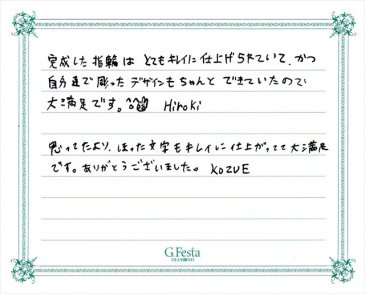 完成した指輪は とてもキレイに仕上げられていて、かつ
自分達で彫ったデザインもちゃんと できていたので
大満足です。 Hiroki
思ってたより、ほった文字もキレイに仕上がってて大満足
です。ありがとうございました。 KOZUE
G.Festa
DIAMOND